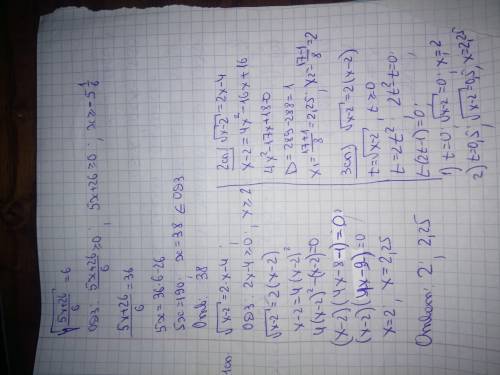 √(5x+26)/6 = 6
ОДЗ: (5x+26)/6 ≥ 0 ; 5x+26 ≥ 0 ; x ≥ -5 1/5
(5x+26)/6 = 36
5x = 36·6-26
5x = 190; x = 38 ∈ ОДЗ
Ответ: 38
√x-2 = 2x-4 ;
ОДЗ: 2x-4 ≥ 0 ; x ≥ 2
√x-2 = 2(x-2)
x-2 = 4(x-2)²
4(x-2)²-(x-2)=0
(x-2)(4x-8-1)=0;
(x-2)(4x-9)=0
x=2, x=2,25
Ответ: 2 ; 2,25
2сп) √x-2 = 2x-4
x-2 = 4x²-16x+16
4x²-17x+18=0
D = 289-288 = 1
x₁ = (17+1)/8 = 2,25; x₂ = (17-1)/8 = 2
3сп) √x-2 = 2(x-2)
t = √x-2, t ≥ 0
t = 2t² ; 2t²-t=0;
t(2t-1)=0;
1) t=0; √x-2 = 0; x=2
2) t=0,5; √x-2 = 0,5; x=2,25